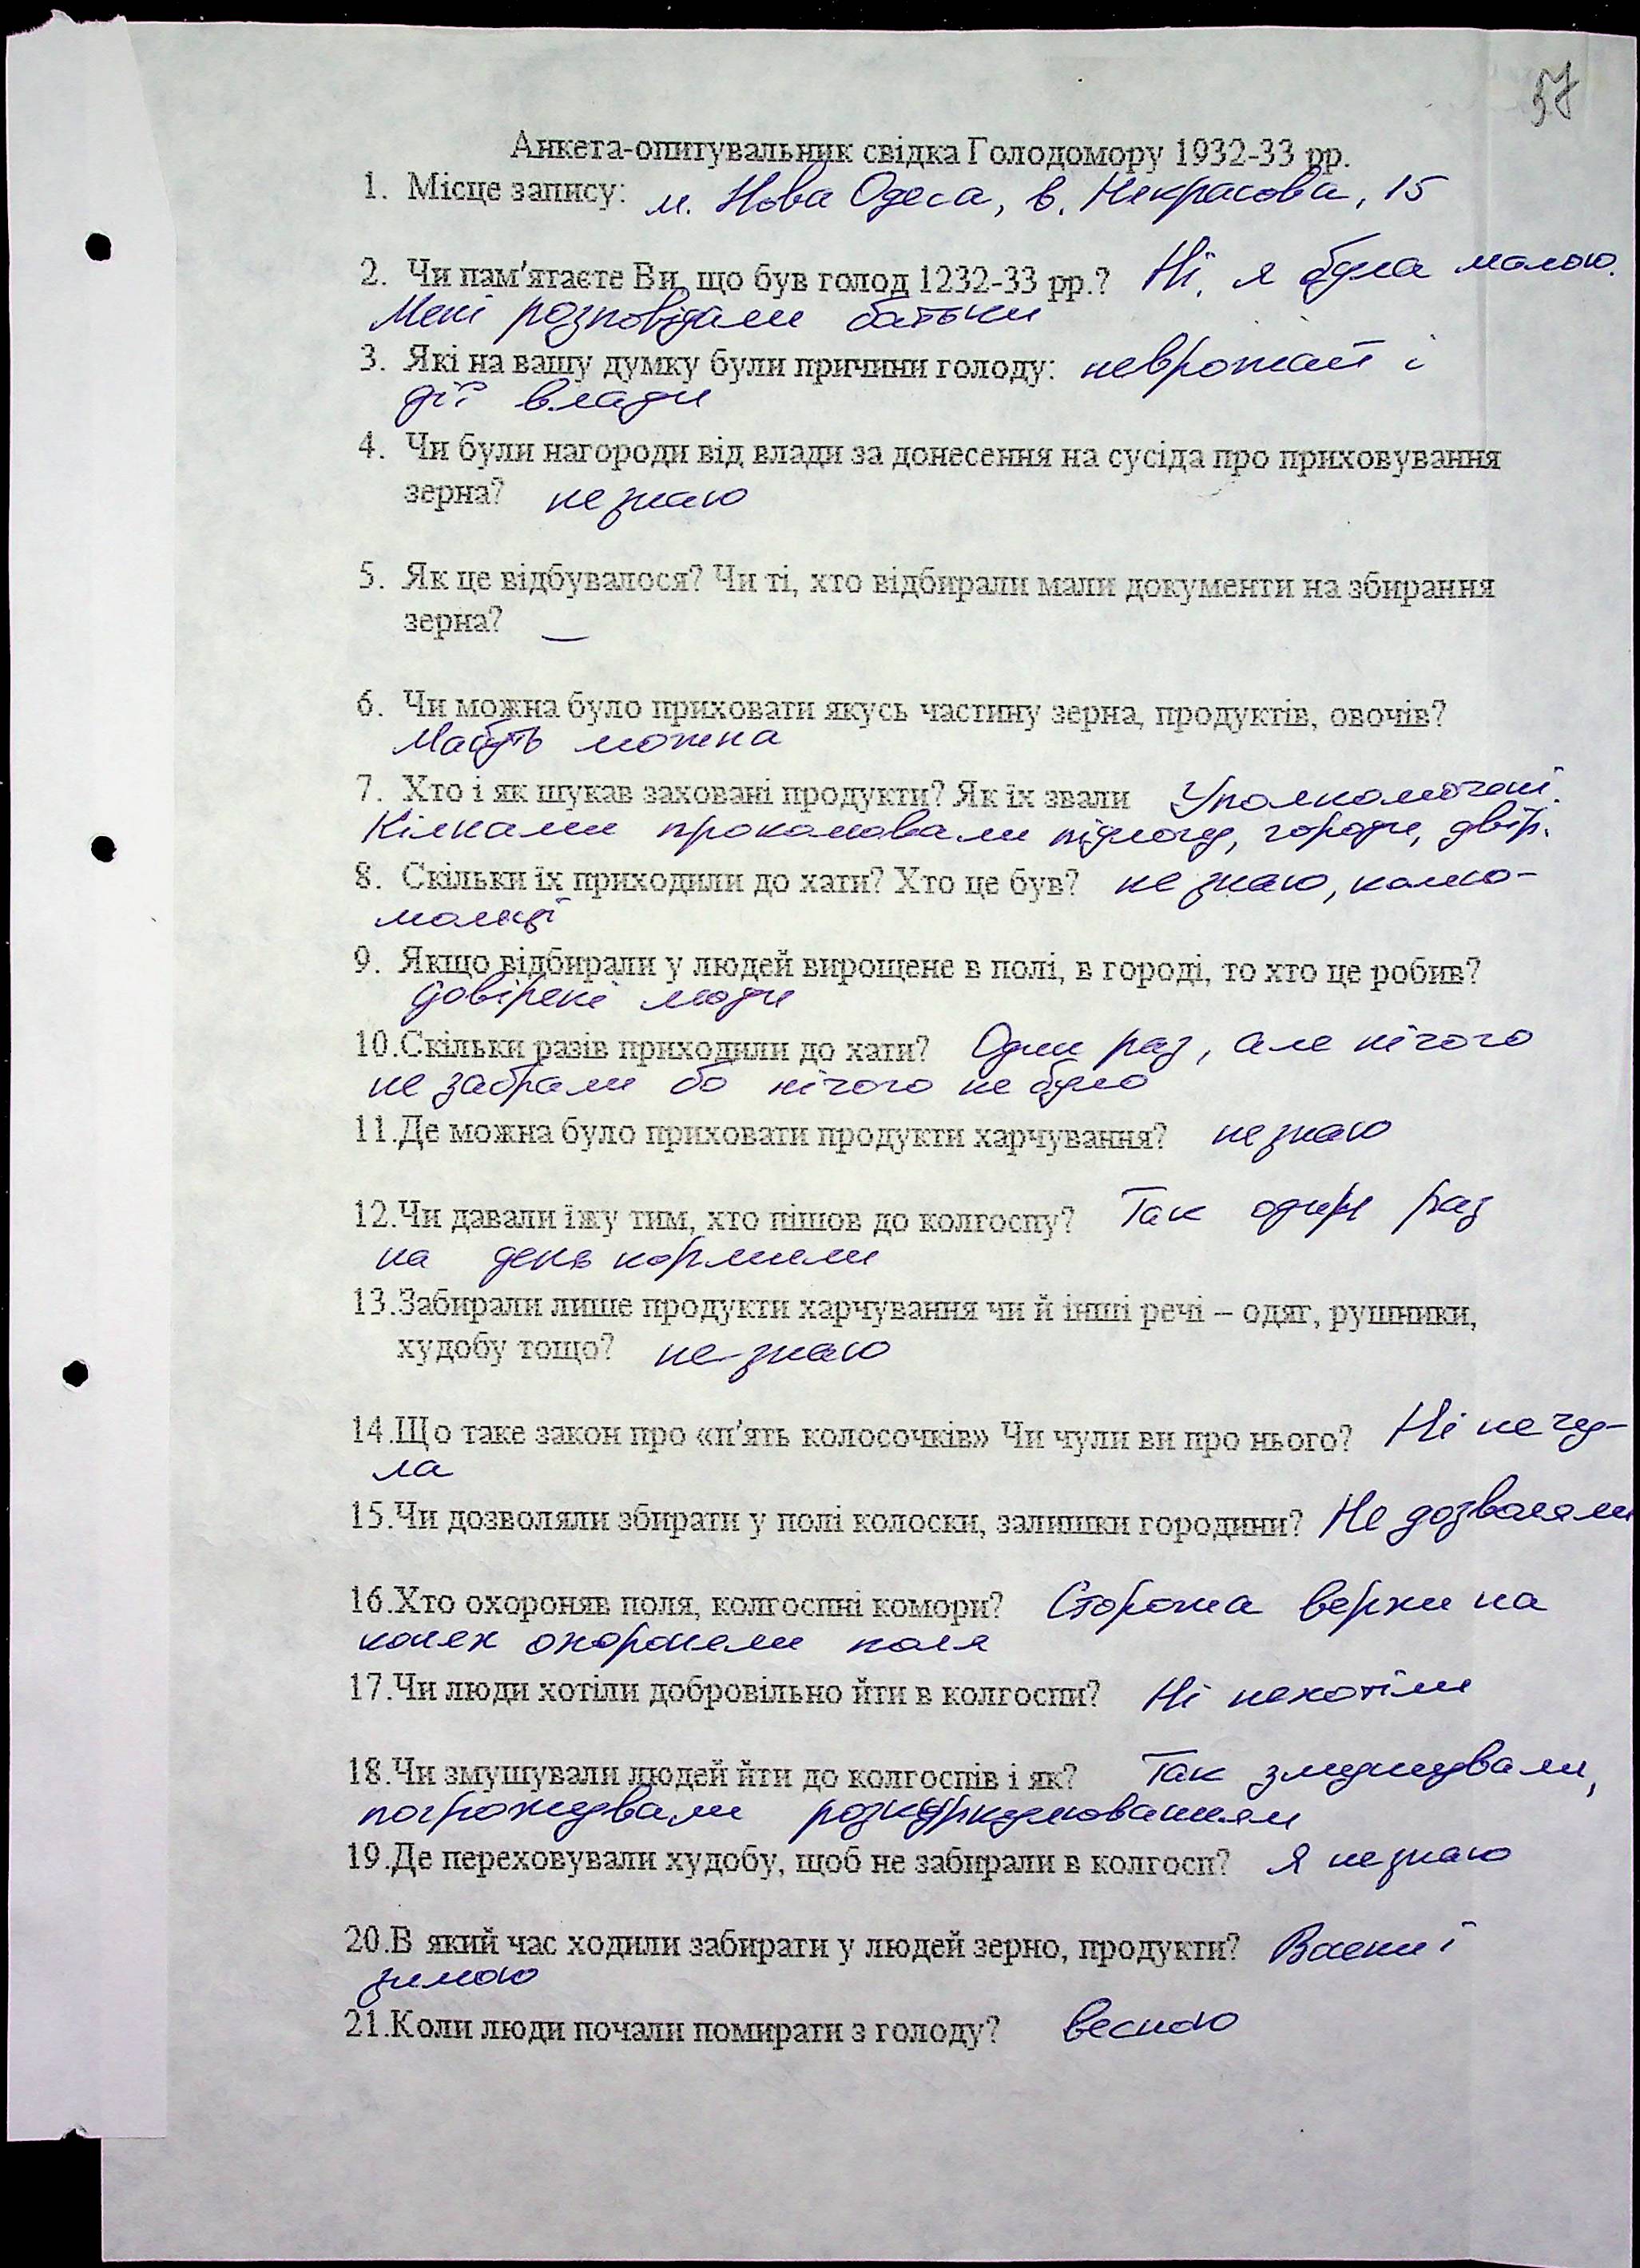 57
Анкета-опитувальник свідка Голодомору 1932-33 рр.
1. Місце запису: м. Нова Одеса, в. Некрасова, 15
2. Чи пам'ятаєте Ви, що був голод 1232-33 рр.? Ні, я була малою.
Мені розповідали батьки
3. Які на вашу думку були причини голоду: неврожай і
дії влади
4. Чи були нагороди від влади за донесення на сусіда про приховування
зерна? не знаю
5. Як це відбувалося? Чи ті, хто відбирали мали документи на збирання
зерна? —
6. Чи можна було приховати якусь частину зерна, продуктів, овочів?
Мабуть можна
7. Хто і як шукав заховані продукти? Як їх звали Уполномочені.
Кілками проколювали підлогу, городи, двір.
8. Скільки їх приходили до хати? Хто це був? не знаю, комсо-
мольці
9. Якщо відбирали у людей вирощене в полі, в городі, то хто це робив?
довірені люди
10.Скільки разів приходили до хати? Один раз, але нічого
не забрали бо нічого не було
11.Де можна було приховати продукти харчування? не знаю
12.Чи давали їжу тим, хто пішов до колгоспу? Так один раз
на день кормили
13.Забирали лише продукти харчування чи й інші речі – одяг, рушники,
худобу тощо? не знаю
14.Що таке закон про «п'ять колосочків» Чи чули ви про нього? Ні не чу-
ла
15.Чи дозволяли збирати у полі колоски, залишки городини? Не дозволяли
16.Хто охороняв поля, колгоспні комори? Сторожа верхи на
конях охороняли поля
17.Чи люди хотіли добровільно йти в колгоспи? Ні нехотіли
18.Чи змушували людей йти до колгоспів і як? Так змушували,
погрожували розкуркулюванням
19.Де переховували худобу, щоб не забирали в колгосп? Я не знаю
20.В який час ходили забирати у людей зерно, продукти? Восени і
зимою
21.Коли люди почали помирати з голоду? весною